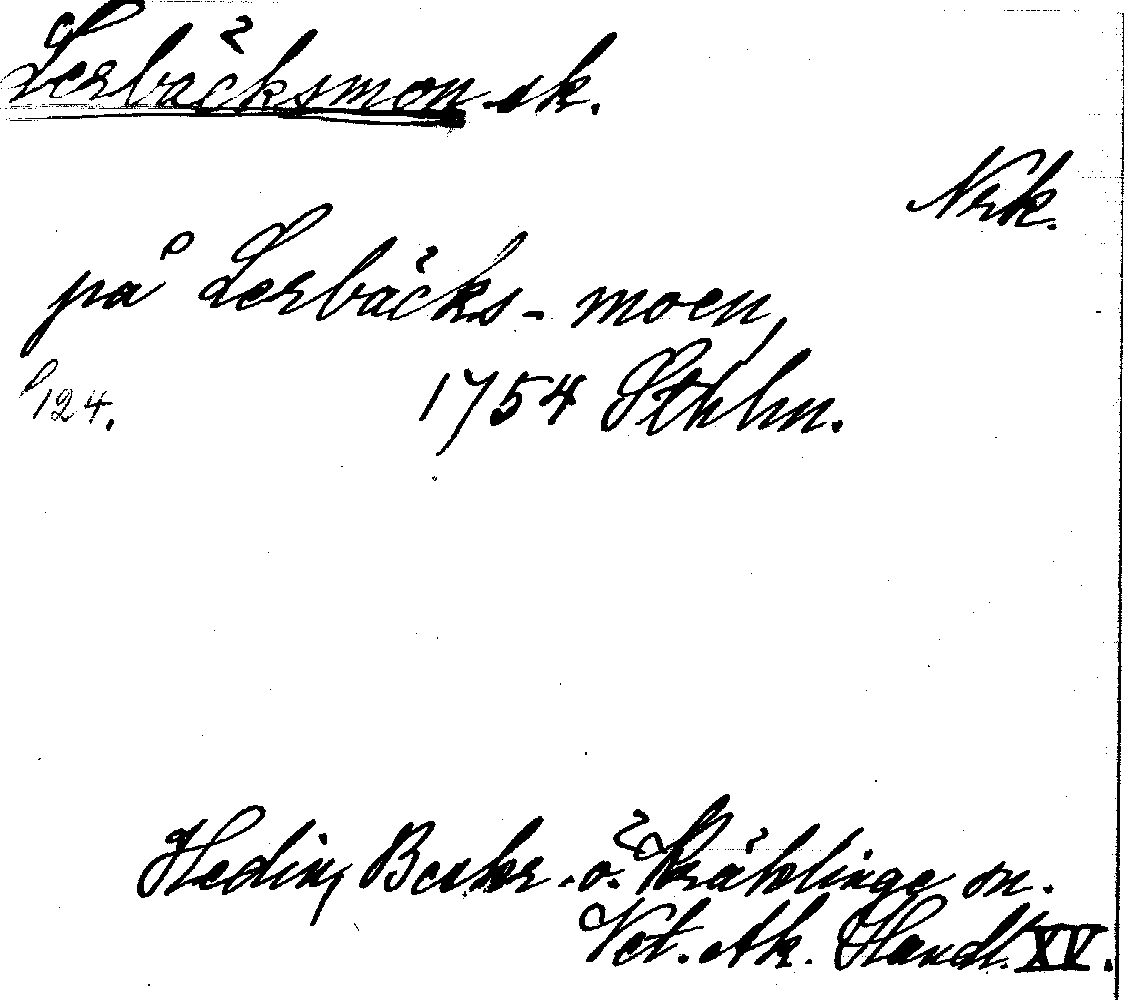 Lerbäcksmon sk.
Nrk.
på Lerbäcks-moen,
124. 1754 Sthlm.
Hedin, Beskr. ö. Kräklinge sn.
Vet. Ak. Handl. XV.